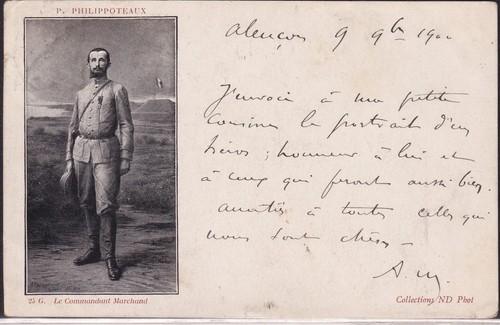 P. PHILIPPOTEAUX
Alençon 9 9bre 1900
J'envoie à ma petite
cousine le portrait d'un
héros ; honneur à lui et
à ceux qui feront aussi bien.
amitiés à toutes celles qui
nous sont chères _
A. M.
25 G. Le Commandant Marchand
Collections ND Phot